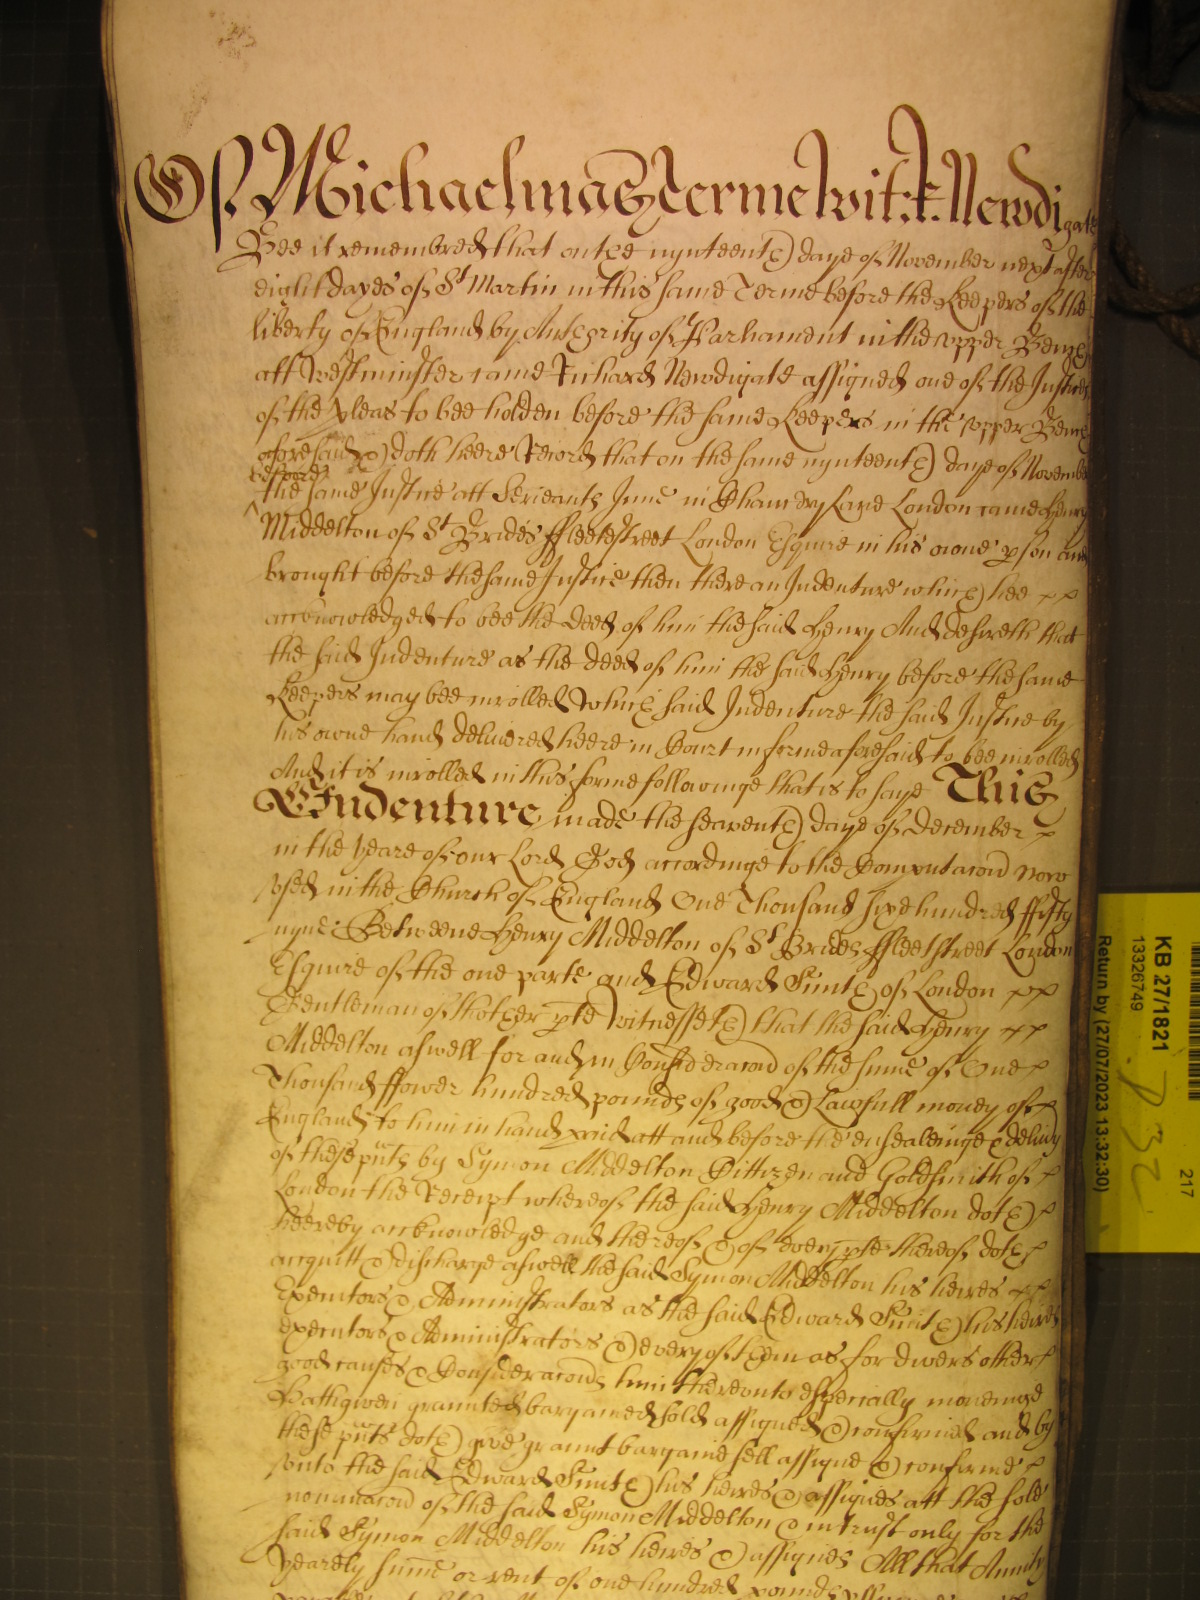 Of Michaelmas Terme witt: R: Newdigate
Bee it remembred that on the nynteenth daye of November next after
eight dayes of St Martin in this same Terme before the Keepers of the
liberty of England by Authority of Parliament in the vpper Bench
att Westminster came Richard Newdigate assigned one of the Justices
of the pleas to bee holden before the same Keepers in the vpper Bench
aforesaid & doth heere Record that on the same nynteenth daye of November
before
the same Justice att Serieants Inne in Chancery Lane London came Henry
Middelton of St Brides ffleetestreet London Esquire in his owne pson and
brought before the same Justice then there an Indenture which hee
acknowledged to bee the deed of him the said Henry And desireth that
the said Indenture as the deed of him the said Henry before the same
Keepers may bee inrolled Which said Indenture the said Justice by
his owne hand delivered heere in Court in forme aforesaid to bee inrolled
And it is inrolled in this forme followinge that is to saye This
Indenture made the seaventh daye of December
in the yeare of our Lord God accordinge to the Computacon now
vsed in the Church of England One Thousand sixe hundred ffifty
nyne Betweene Henry Middelton of St Brides ffleetstreet London
Esquire of the one parte and Edward of London
Gentleman of thother pte Witnesseth that the said Henry
Middelton aswell for and in Consideracon of the sume of One
Thousand ffower hundred pounds of good & Lawfull money of
England to him in hand paid att and before the ensealeinge & delivy
of these pnts by Symon Middelton Cittizen and Goldsmith of
London the Receipt whereof the said Henry Middelton doth
heereby acknowledge and thereof & of every pte thereof doth
acquitt & discharge aswell the said Symon Middelton his heires
Executors & Administrators as the said Edward his heires
executors & Administrators & every of them as for divers other
good causes & Consideracons him therevnto especially moveinge
Hath given graunted bargained sold assigned & confirmed and by
these pnts doth give graunt bargaine sell assigne & confirme
vnto the said Edward his heires & assignes att the sole
nominacon of the said Symon Middelton & in trust only for the
said Symon Middelton his heires & assignes All that Annuity
yearely sume or rent of one hundred pounds
KB 27/1821
13326749
217
P 32
Return by (27/07/2023 13:32:30)